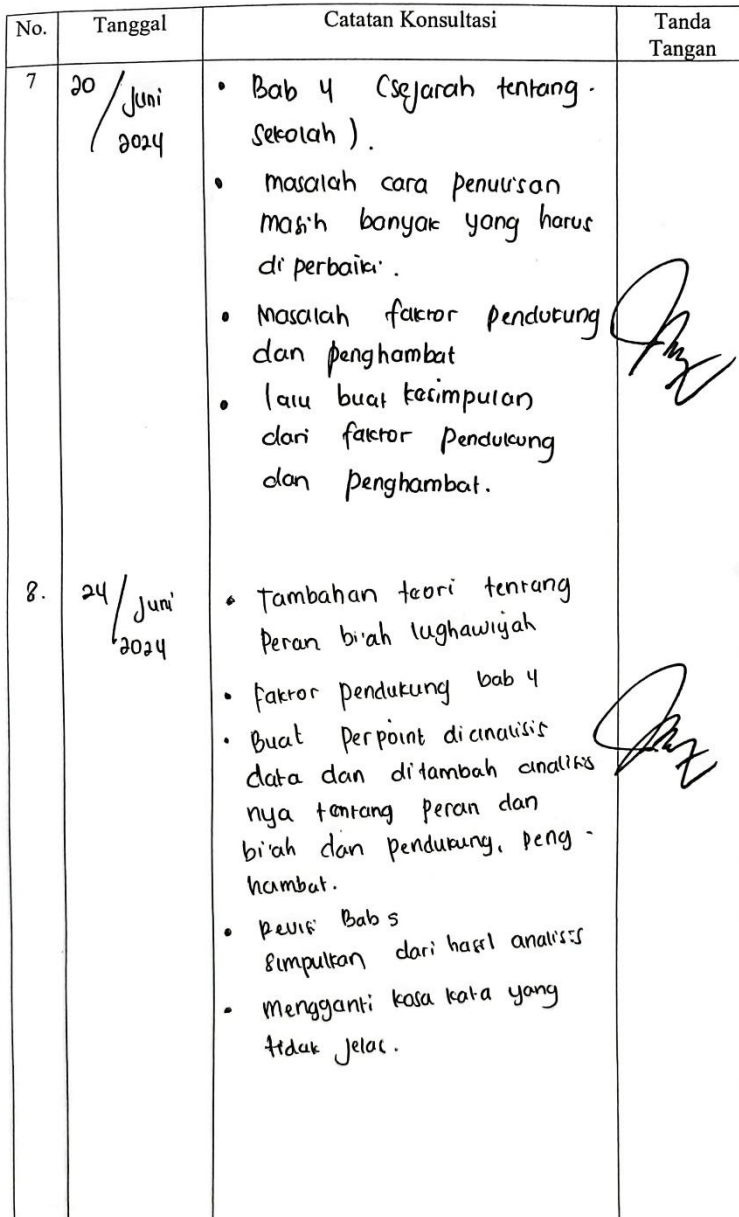 No. Tanggal Catatan Konsultasi Tanda Tangan
7 20/Juni 2024
• Bab 4 (sejarah tentang
sekolah).
• masalah cara penulisan
masih banyak yang harus
di perbaiki.
• Masalah faktor pendukung
dan penghambat
• lalu buat kesimpulan
dari faktor pendukung
dan penghambat.
8. 24/Juni 2024
• Tambahan teori tentang
peran bi'ah lughawiyah
• faktor pendukung bab 4
• Buat perpoint dianalisis
data dan ditambah analisis
nya tentang peran dan
bi'ah dan pendukung, peng-
hambat.
• Revisi Bab 5
simpulkan dari hasil analisis
• Mengganti kosa kata yang
tidak jelas.